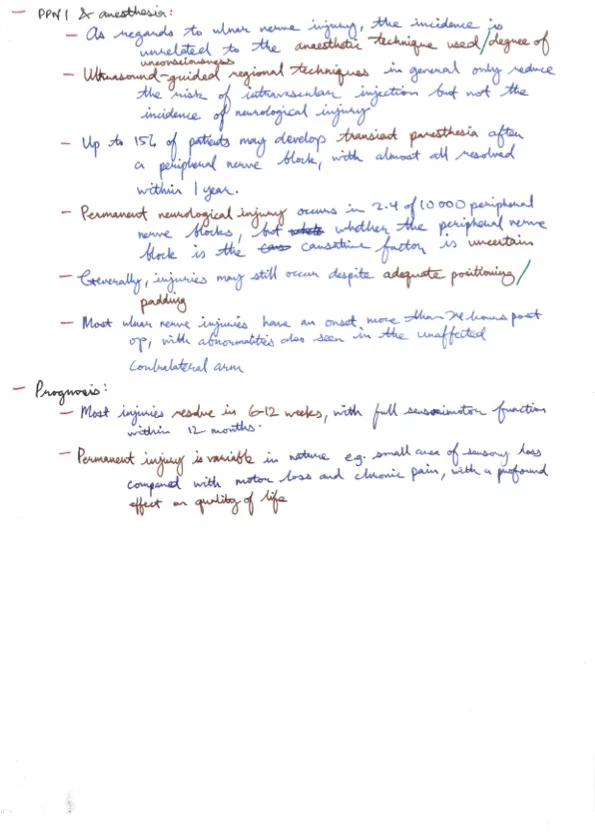 - PPNI & anesthesia:
- As regards to ulnar nerve injury, the incidence is
unrelated to the anaesthetic technique used/degree of
unconsciousness
- Ultrasound-guided regional techniques in general only reduce
the risk of intravascular injection but not the
incidence of neurological injury
- Up to 15% of patients may develop transient paresthesia after
a peripheral nerve block, with almost all resolved
within 1 year.
- Permanent neurological injury occurs in 2.4 of 10 000 peripheral
nerve blocks, but whether the peripheral nerve
block is the causative factor is uncertain
- Generally, injuries may still occur despite adequate positioning/
padding
- Most ulnar nerve injuries have an onset more than hours post
op, with abnormalities also seen in the unaffected
contralateral arm
- Prognosis:
- Most injuries resolve in 6-12 weeks, with full sensorimotor function
within 12 months.
- Permanent injury is variable in nature eg. small area of sensory loss
compared with motor loss and chronic pain, with a profound
effect on quality of life